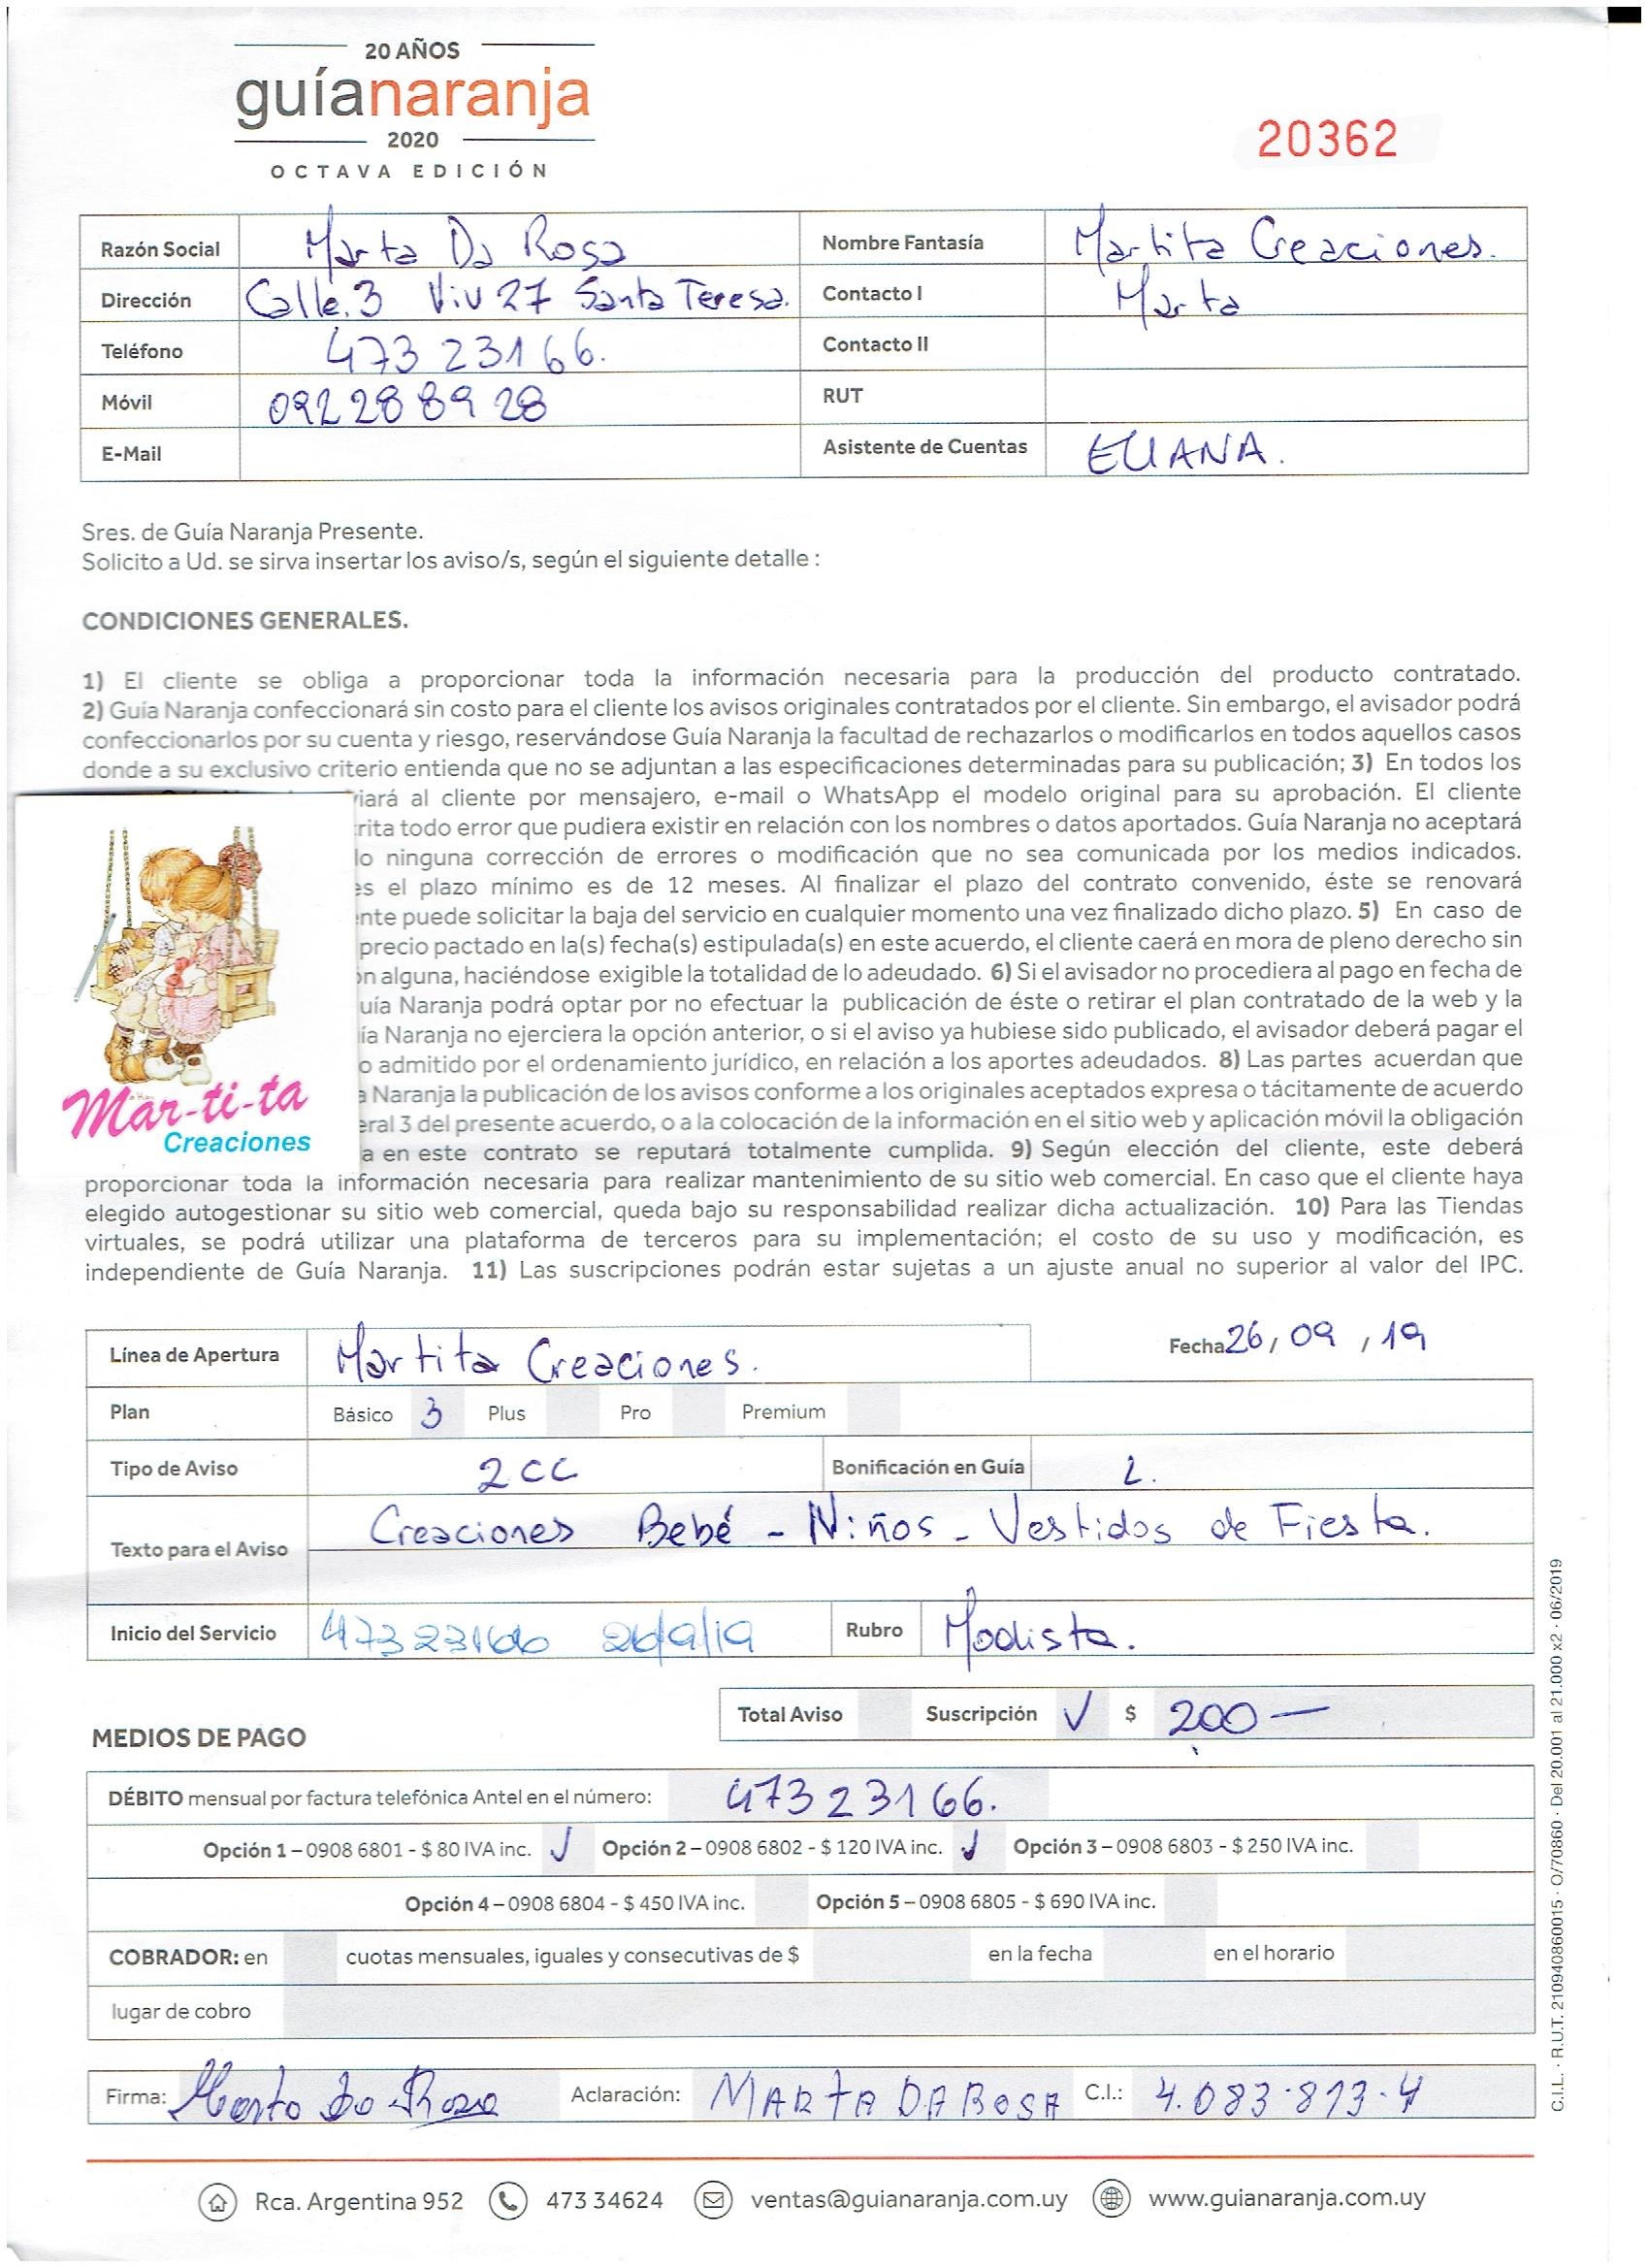 20 AÑOS
guíanaranja
2020
OCTAVA EDICIÓN
20362
Razón Social Marta Da Rosa Nombre Fantasía Martita Creaciones.
Dirección Calle.3 Viv 27 Santa Teresa. Contacto I Marta
Teléfono 473 23166. Contacto II
Móvil 092288928 RUT
E-Mail Asistente de Cuentas ELIANA.
Sres. de Guía Naranja Presente.
Solicito a Ud. se sirva insertar los aviso/s, según el siguiente detalle :
CONDICIONES GENERALES.
1) El cliente se obliga a proporcionar toda la información necesaria para la producción del producto contratado.
2) Guía Naranja confeccionará sin costo para el cliente los avisos originales contratados por el cliente. Sin embargo, el avisador podrá
confeccionarlos por su cuenta y riesgo, reservándose Guía Naranja la facultad de rechazarlos o modificarlos en todos aquellos casos
donde a su exclusivo criterio entienda que no se adjuntan a las especificaciones determinadas para su publicación; 3) En todos los
al cliente por mensajero, e-mail o WhatsApp el modelo original para su aprobación. El cliente
todo error que pudiera existir en relación con los nombres o datos aportados. Guía Naranja no aceptará
ninguna corrección de errores o modificación que no sea comunicada por los medios indicados.
el plazo mínimo es de 12 meses. Al finalizar el plazo del contrato convenido, éste se renovará
puede solicitar la baja del servicio en cualquier momento una vez finalizado dicho plazo. 5) En caso de
precio pactado en la(s) fecha(s) estipulada(s) en este acuerdo, el cliente caerá en mora de pleno derecho sin
alguna, haciéndose exigible la totalidad de lo adeudado. 6) Si el avisador no procediera al pago en fecha de
uía Naranja podrá optar por no efectuar la publicación de éste o retirar el plan contratado de la web y la
ía Naranja no ejerciera la opción anterior, o si el aviso ya hubiese sido publicado, el avisador deberá pagar el
o admitido por el ordenamiento jurídico, en relación a los aportes adeudados. 8) Las partes acuerdan que
a Naranja la publicación de los avisos conforme a los originales aceptados expresa o tácitamente de acuerdo
eral 3 del presente acuerdo, o a la colocación de la información en el sitio web y aplicación móvil la obligación
a en este contrato se reputará totalmente cumplida. 9) Según elección del cliente, este deberá
proporcionar toda la información necesaria para realizar mantenimiento de su sitio web comercial. En caso que el cliente haya
elegido autogestionar su sitio web comercial, queda bajo su responsabilidad realizar dicha actualización. 10) Para las Tiendas
virtuales, se podrá utilizar una plataforma de terceros para su implementación; el costo de su uso y modificación, es
independiente de Guía Naranja. 11) Las suscripciones podrán estar sujetas a un ajuste anual no superior al valor del IPC.
Mar-ti-ta
Creaciones
Línea de Apertura Martita Creaciones. Fecha 26 / 09 / 19
Plan Básico 3 Plus Pro Premium
Tipo de Aviso 2CC Bonificación en Guía 2.
Texto para el Aviso Creaciones Bebé - Niños - Vestidos de Fiesta.
Inicio del Servicio 47323166 26/9/19 Rubro Modista.
Total Aviso Suscripción ✓ $ 200 —
MEDIOS DE PAGO
DÉBITO mensual por factura telefónica Antel en el número: 47323166.
Opción 1 – 0908 6801 - $ 80 IVA inc. ✓ Opción 2 – 0908 6802 - $ 120 IVA inc. ✓ Opción 3 – 0908 6803 - $ 250 IVA inc.
Opción 4 – 0908 6804 - $ 450 IVA inc. Opción 5 – 0908 6805 - $ 690 IVA inc.
COBRADOR: en cuotas mensuales, iguales y consecutivas de $ en la fecha en el horario
lugar de cobro
Firma: Marta Da Rosa Aclaración: MARTA DA ROSA C.I.: 4.083.813.4
Rca. Argentina 952 473 34624 ventas@guianaranja.com.uy www.guianaranja.com.uy
C.I.L. · R.U.T. 210940860015 · O/70860 · Del 20.001 al 21.000 x2 · 06/2019